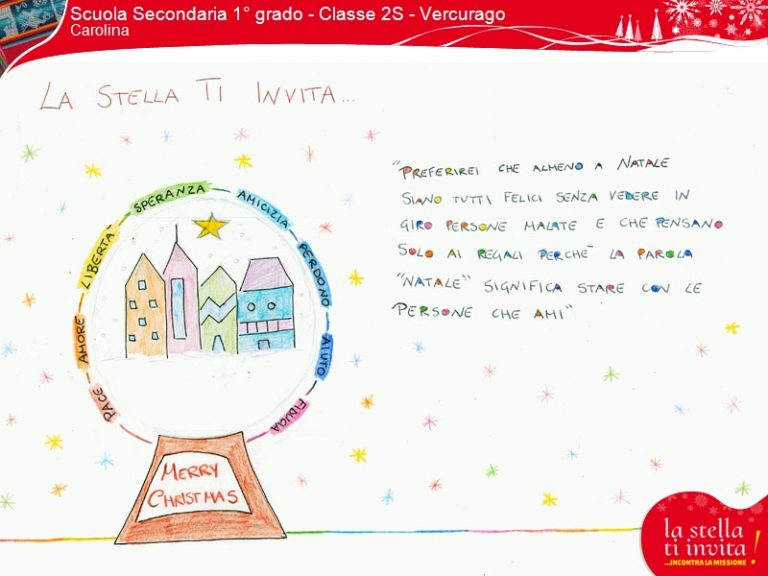 Scuola Secondaria 1° grado - Classe 2S - Vercurago
Carolina
LA STELLA TI INVITA...
PACE
AMORE
LIBERTÀ
SPERANZA
AMICIZIA
PERDONO
AIUTO
FIDUCIA
"PREFERIREI CHE ALMENO A NATALE
SIANO TUTTI FELICI SENZA VEDERE IN
GIRO PERSONE MALATE E CHE PENSANO
SOLO AI REGALI PERCHÈ LA PAROLA
"NATALE" SIGNIFICA STARE CON LE
PERSONE CHE AMI"
MERRY
CHRISTMAS
la stella
ti invita!
...INCONTRA LA MISSIONE